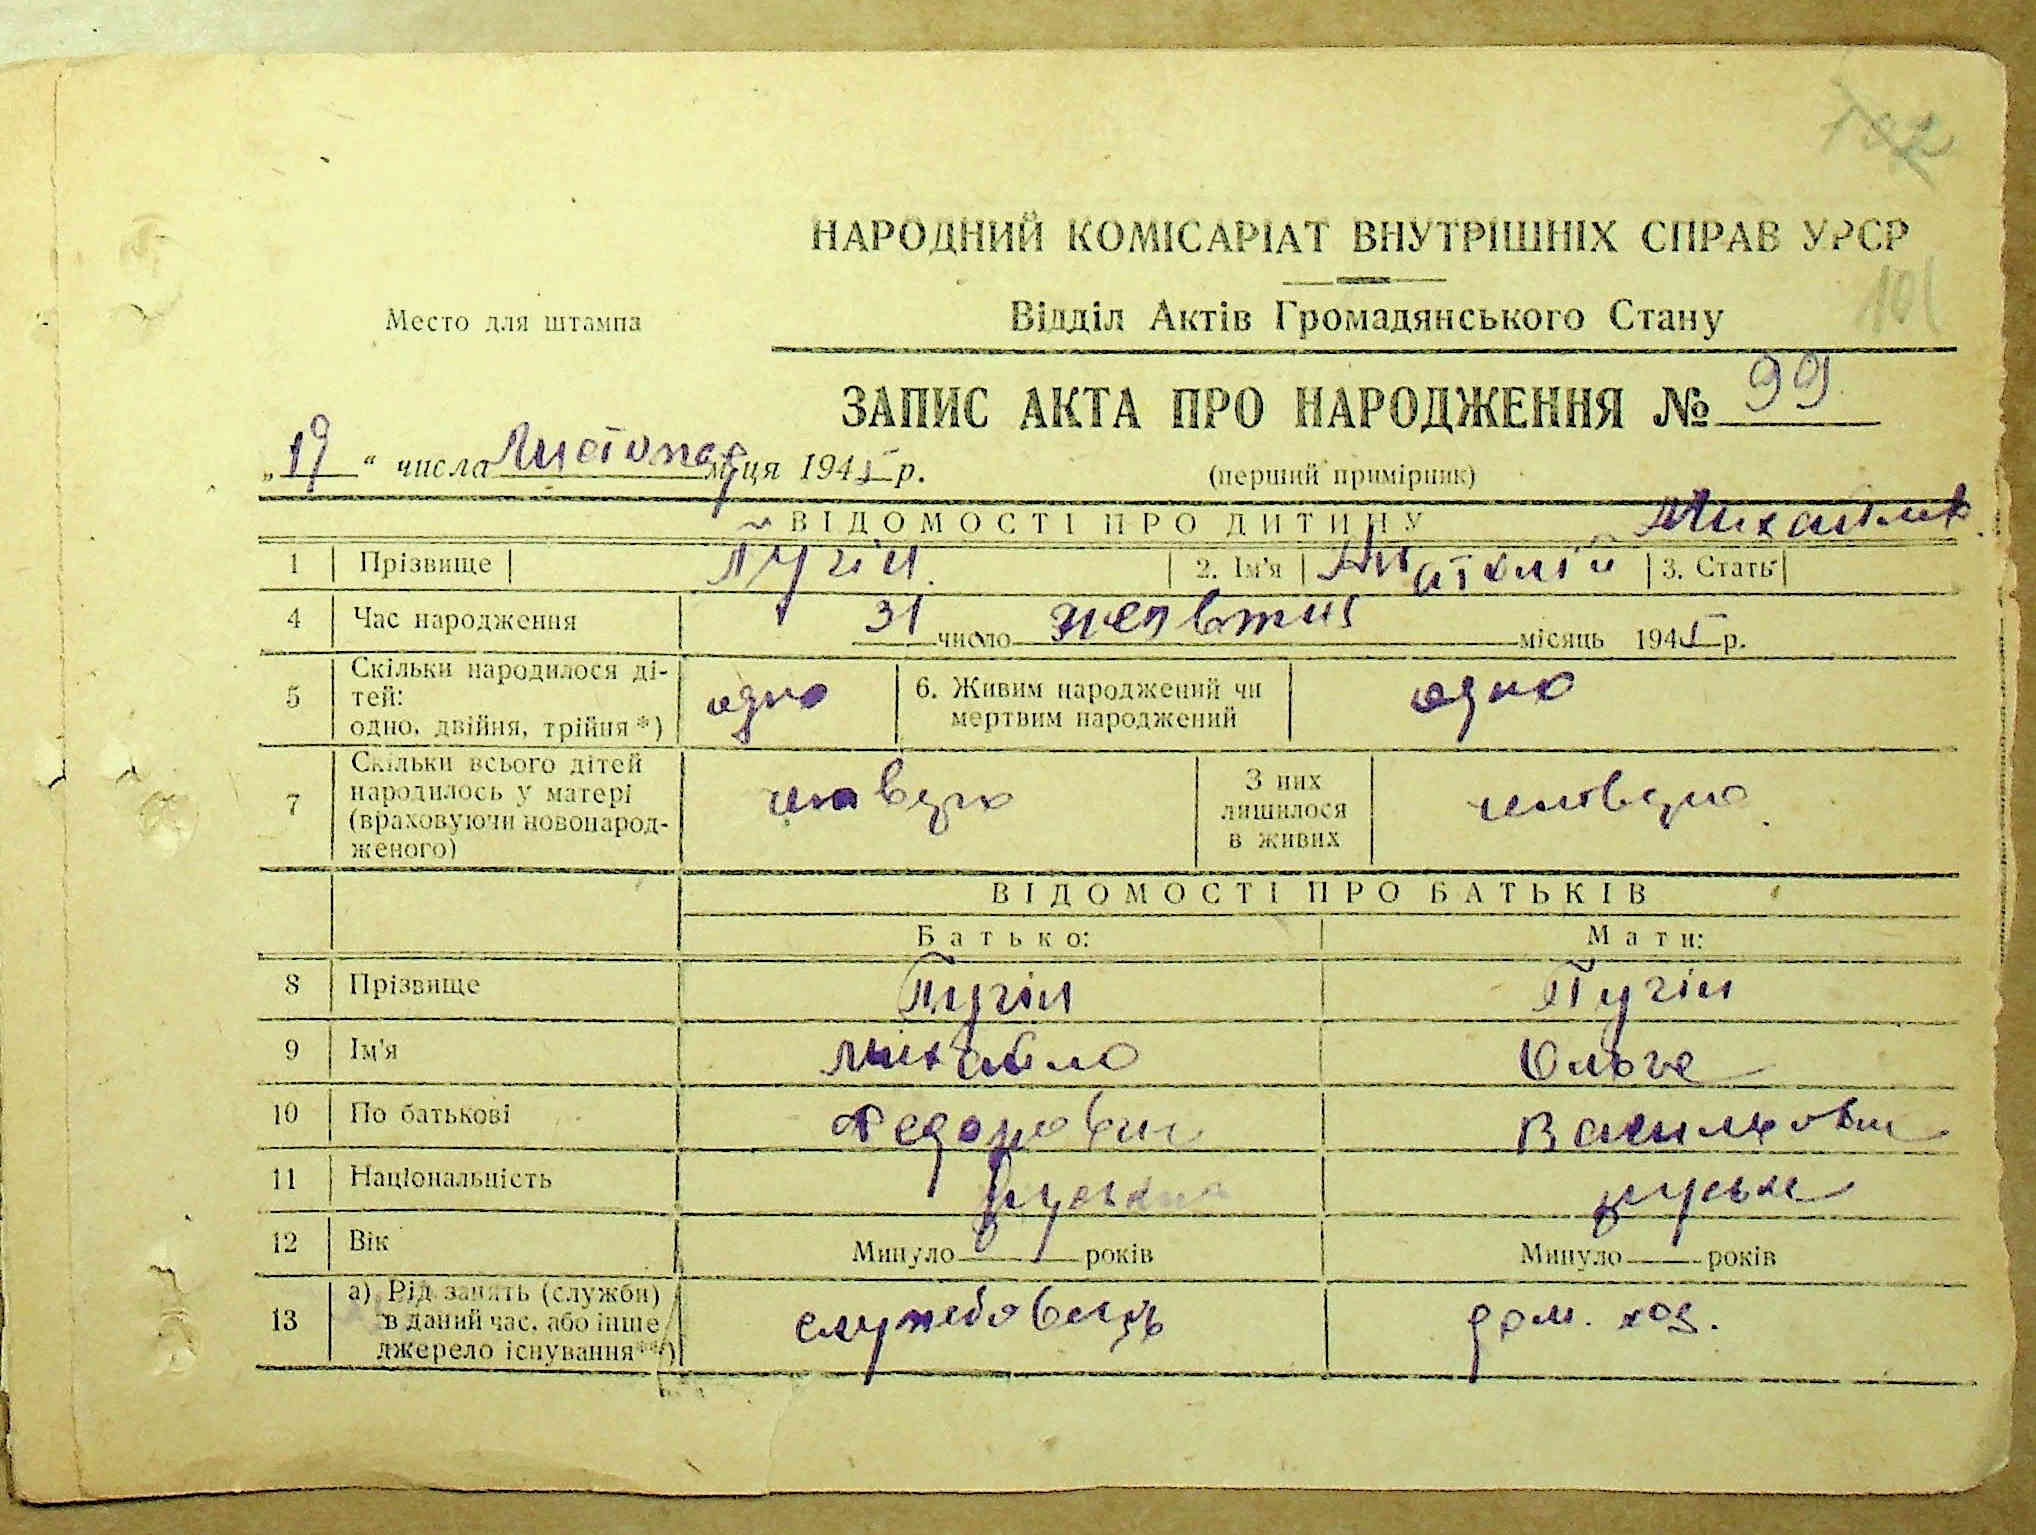 НАРОДНИЙ КОМІСАРІАТ ВНУТРІШНІХ СПРАВ УРСР
101
Место для штампа
Відділ Актів Громадянського Стану
ЗАПИС АКТА ПРО НАРОДЖЕННЯ № 99
„19“ числа Листопад м-ця 1945 р.
(перший примірник)
ВІДОМОСТІ ПРО ДИТИНУ
1 Прізвище Пугін 2. Ім'я Анатолій 3. Стать
4 Час народження 31 число жовтня місяць 1945 р.
5 Скільки народилося ді-
тей:
одно, двійня, трійня*) одно 6. Живим народжений чи
мертвим народжений одно
7 Скільки всього дітей
народилось у матері
(враховуючи новонарод-
женого) четверо З них
лишилося
в живих четверо
ВІДОМОСТІ ПРО БАТЬКІВ
Батько: Мати:
8 Прізвище Пугін Пугін
9 Ім'я Михайло Ольга
10 По батькові Федорович
11 Національність руський руська
12 Вік Минуло років Минуло років
13 а) Рід занять (служби)
в даний час, або інше
джерело існування**) служебовець дом. хоз.